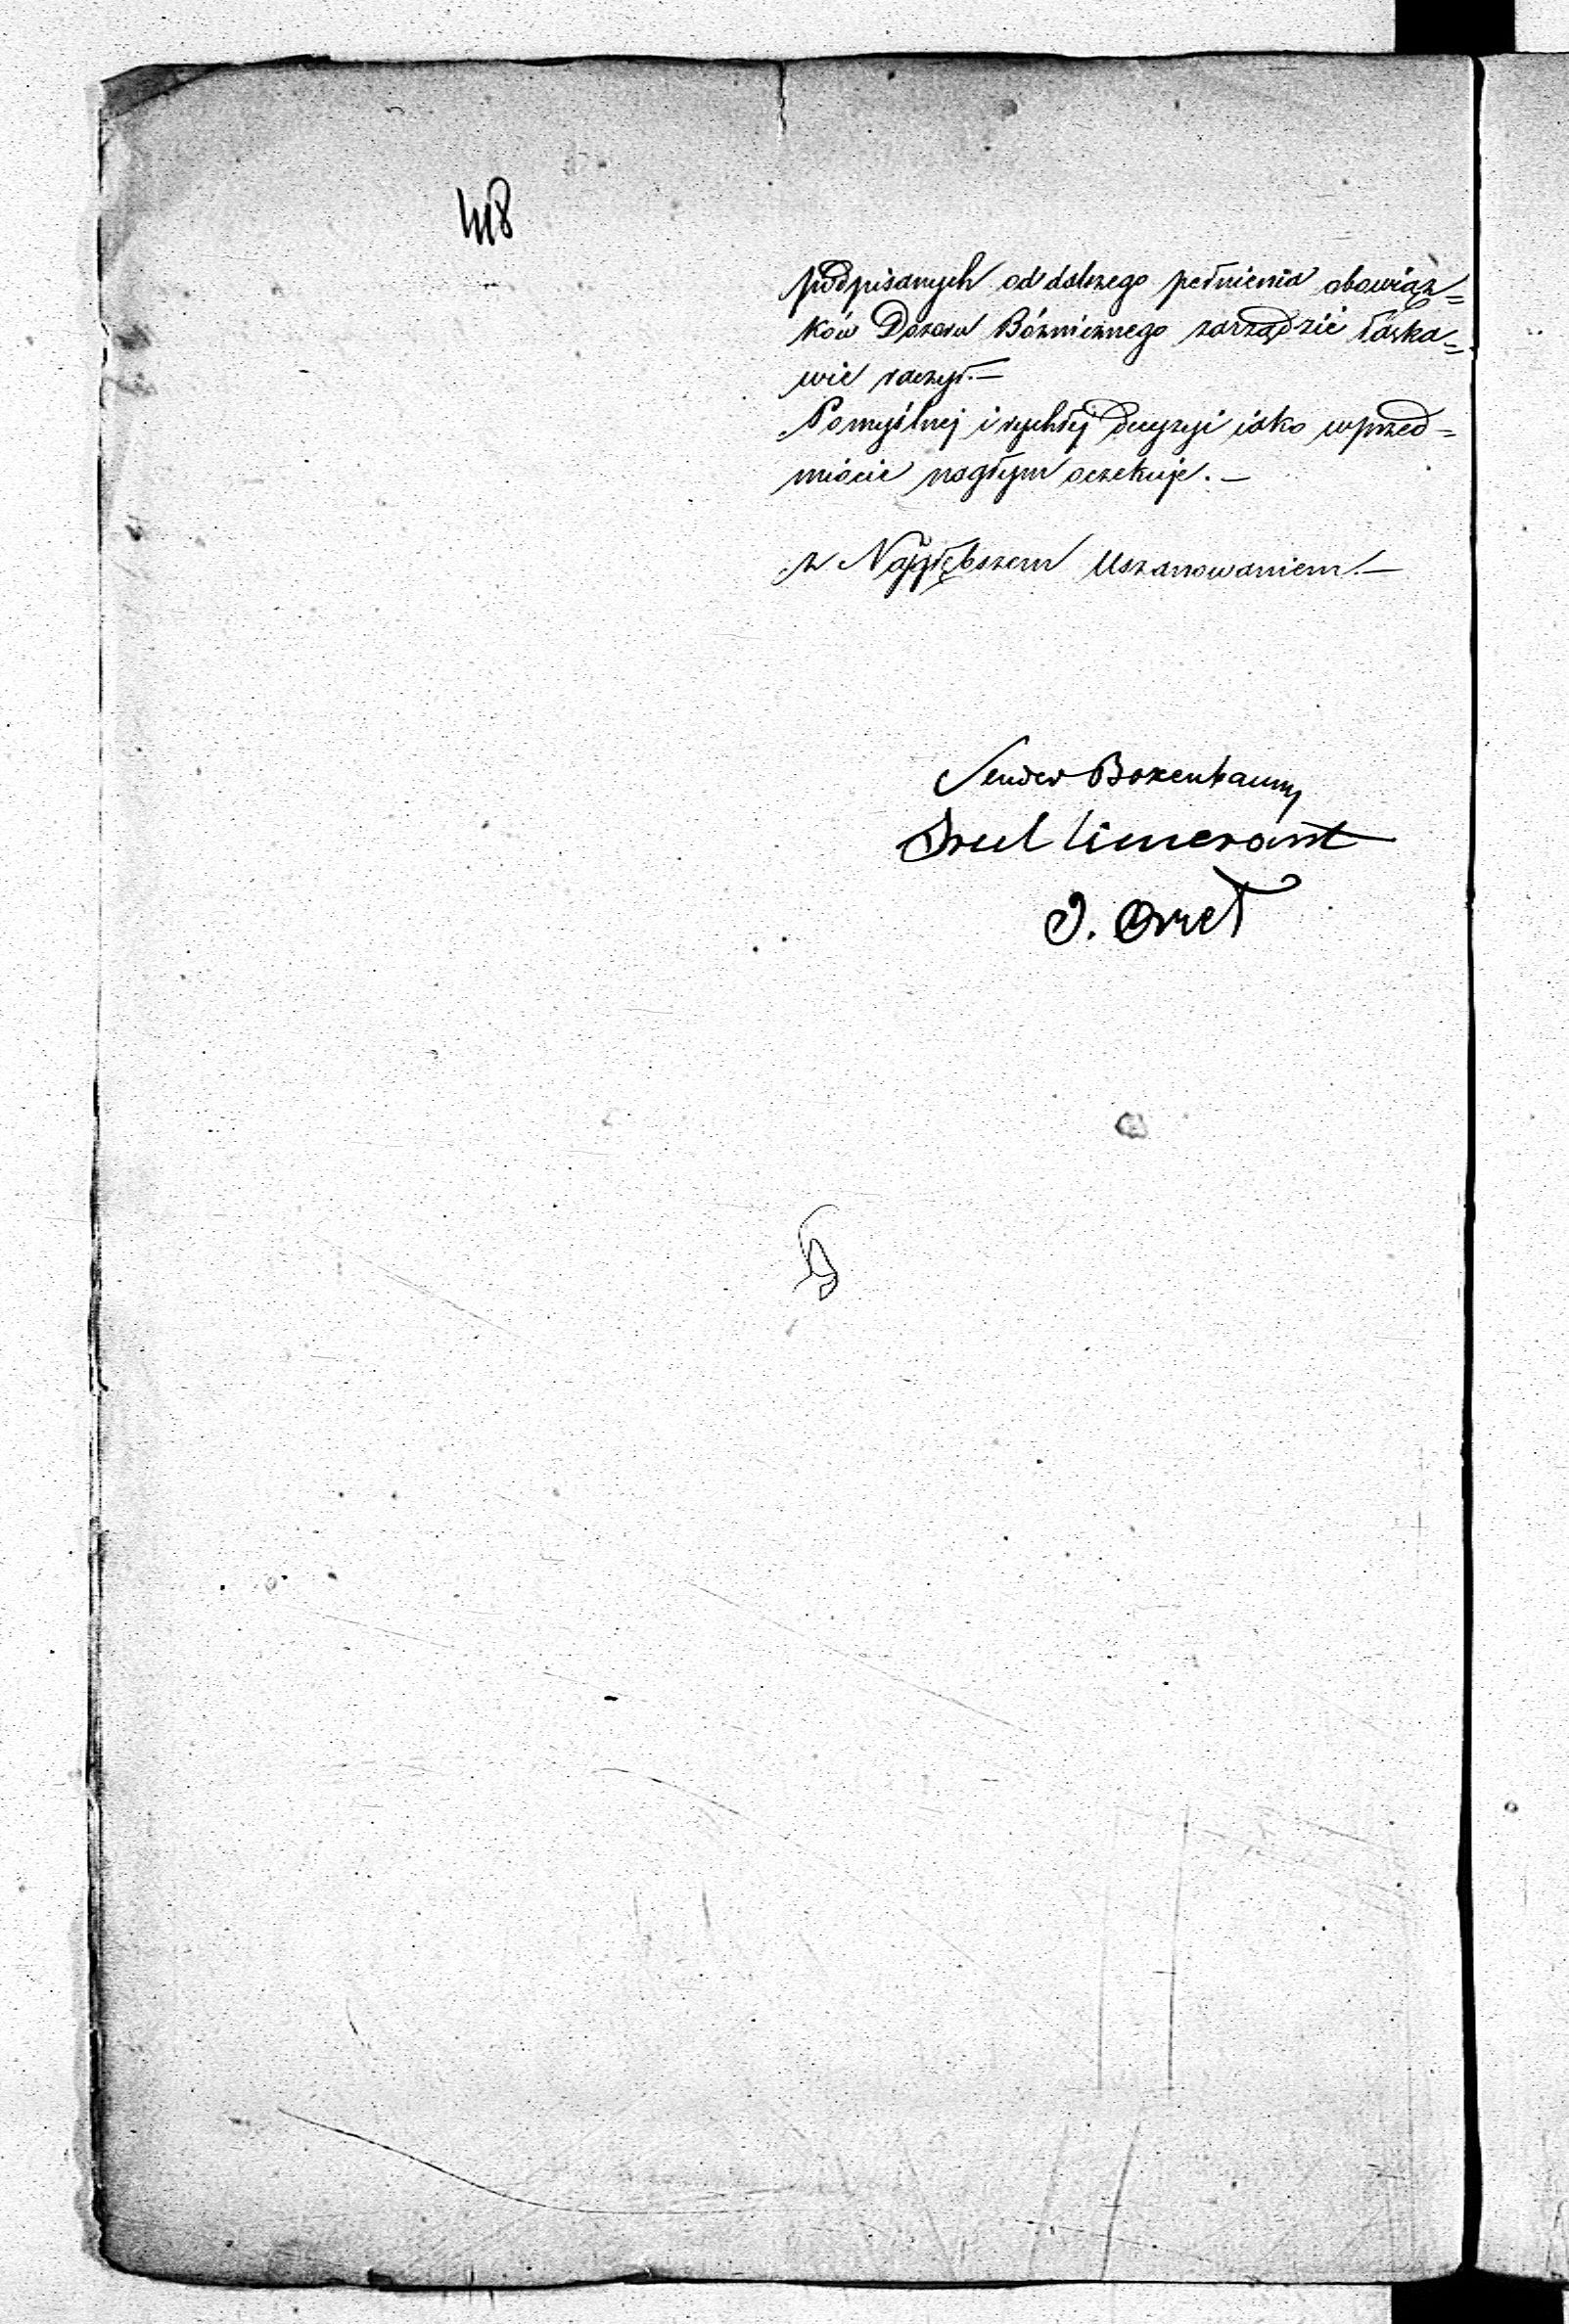 418
podpisanych od dalszego pełnienia obowiąz=
ków Dozoru Bóżnicznego zarządzić łaska=
wie raczył.—
Pomyślnej i rychłéj decyzyi iako w przed=
miocie nagłym oczekuje.—
z Najgłębszem Uszanowaniem.—
Sender Boxenbaum
Srul Cimerant
J. Orzeł